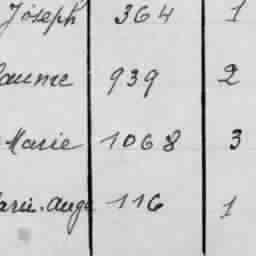 Joseph 364 1
aume 939 2
Marie 1068 3
arie-Ange 116 1